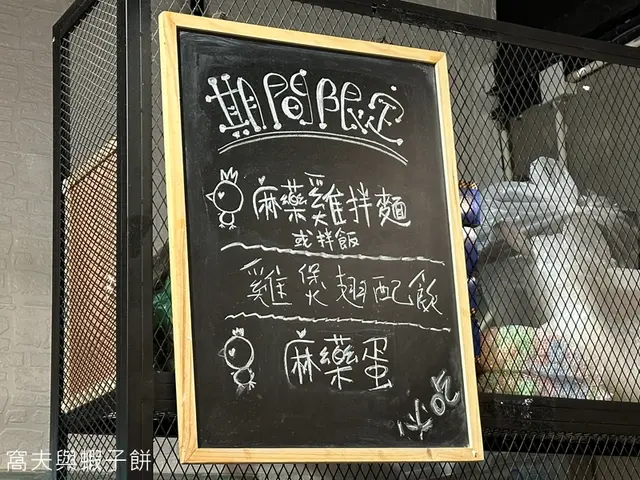 期間限定
麻藥雞拌麵
或拌飯
雞煲翅配飯
麻藥蛋
必吃
窩夫與蝦子餅